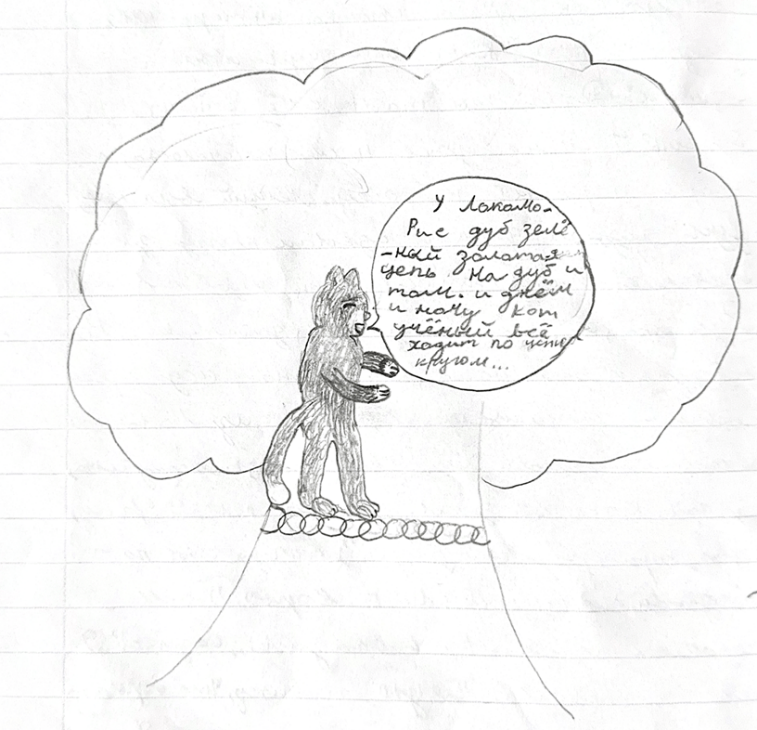 У Локомо-
Рие дуб зелё
-ный золотая
цепь на дуб и
том. и днём
и ночу кот
учёный всё
ходит по цепи
кругом...